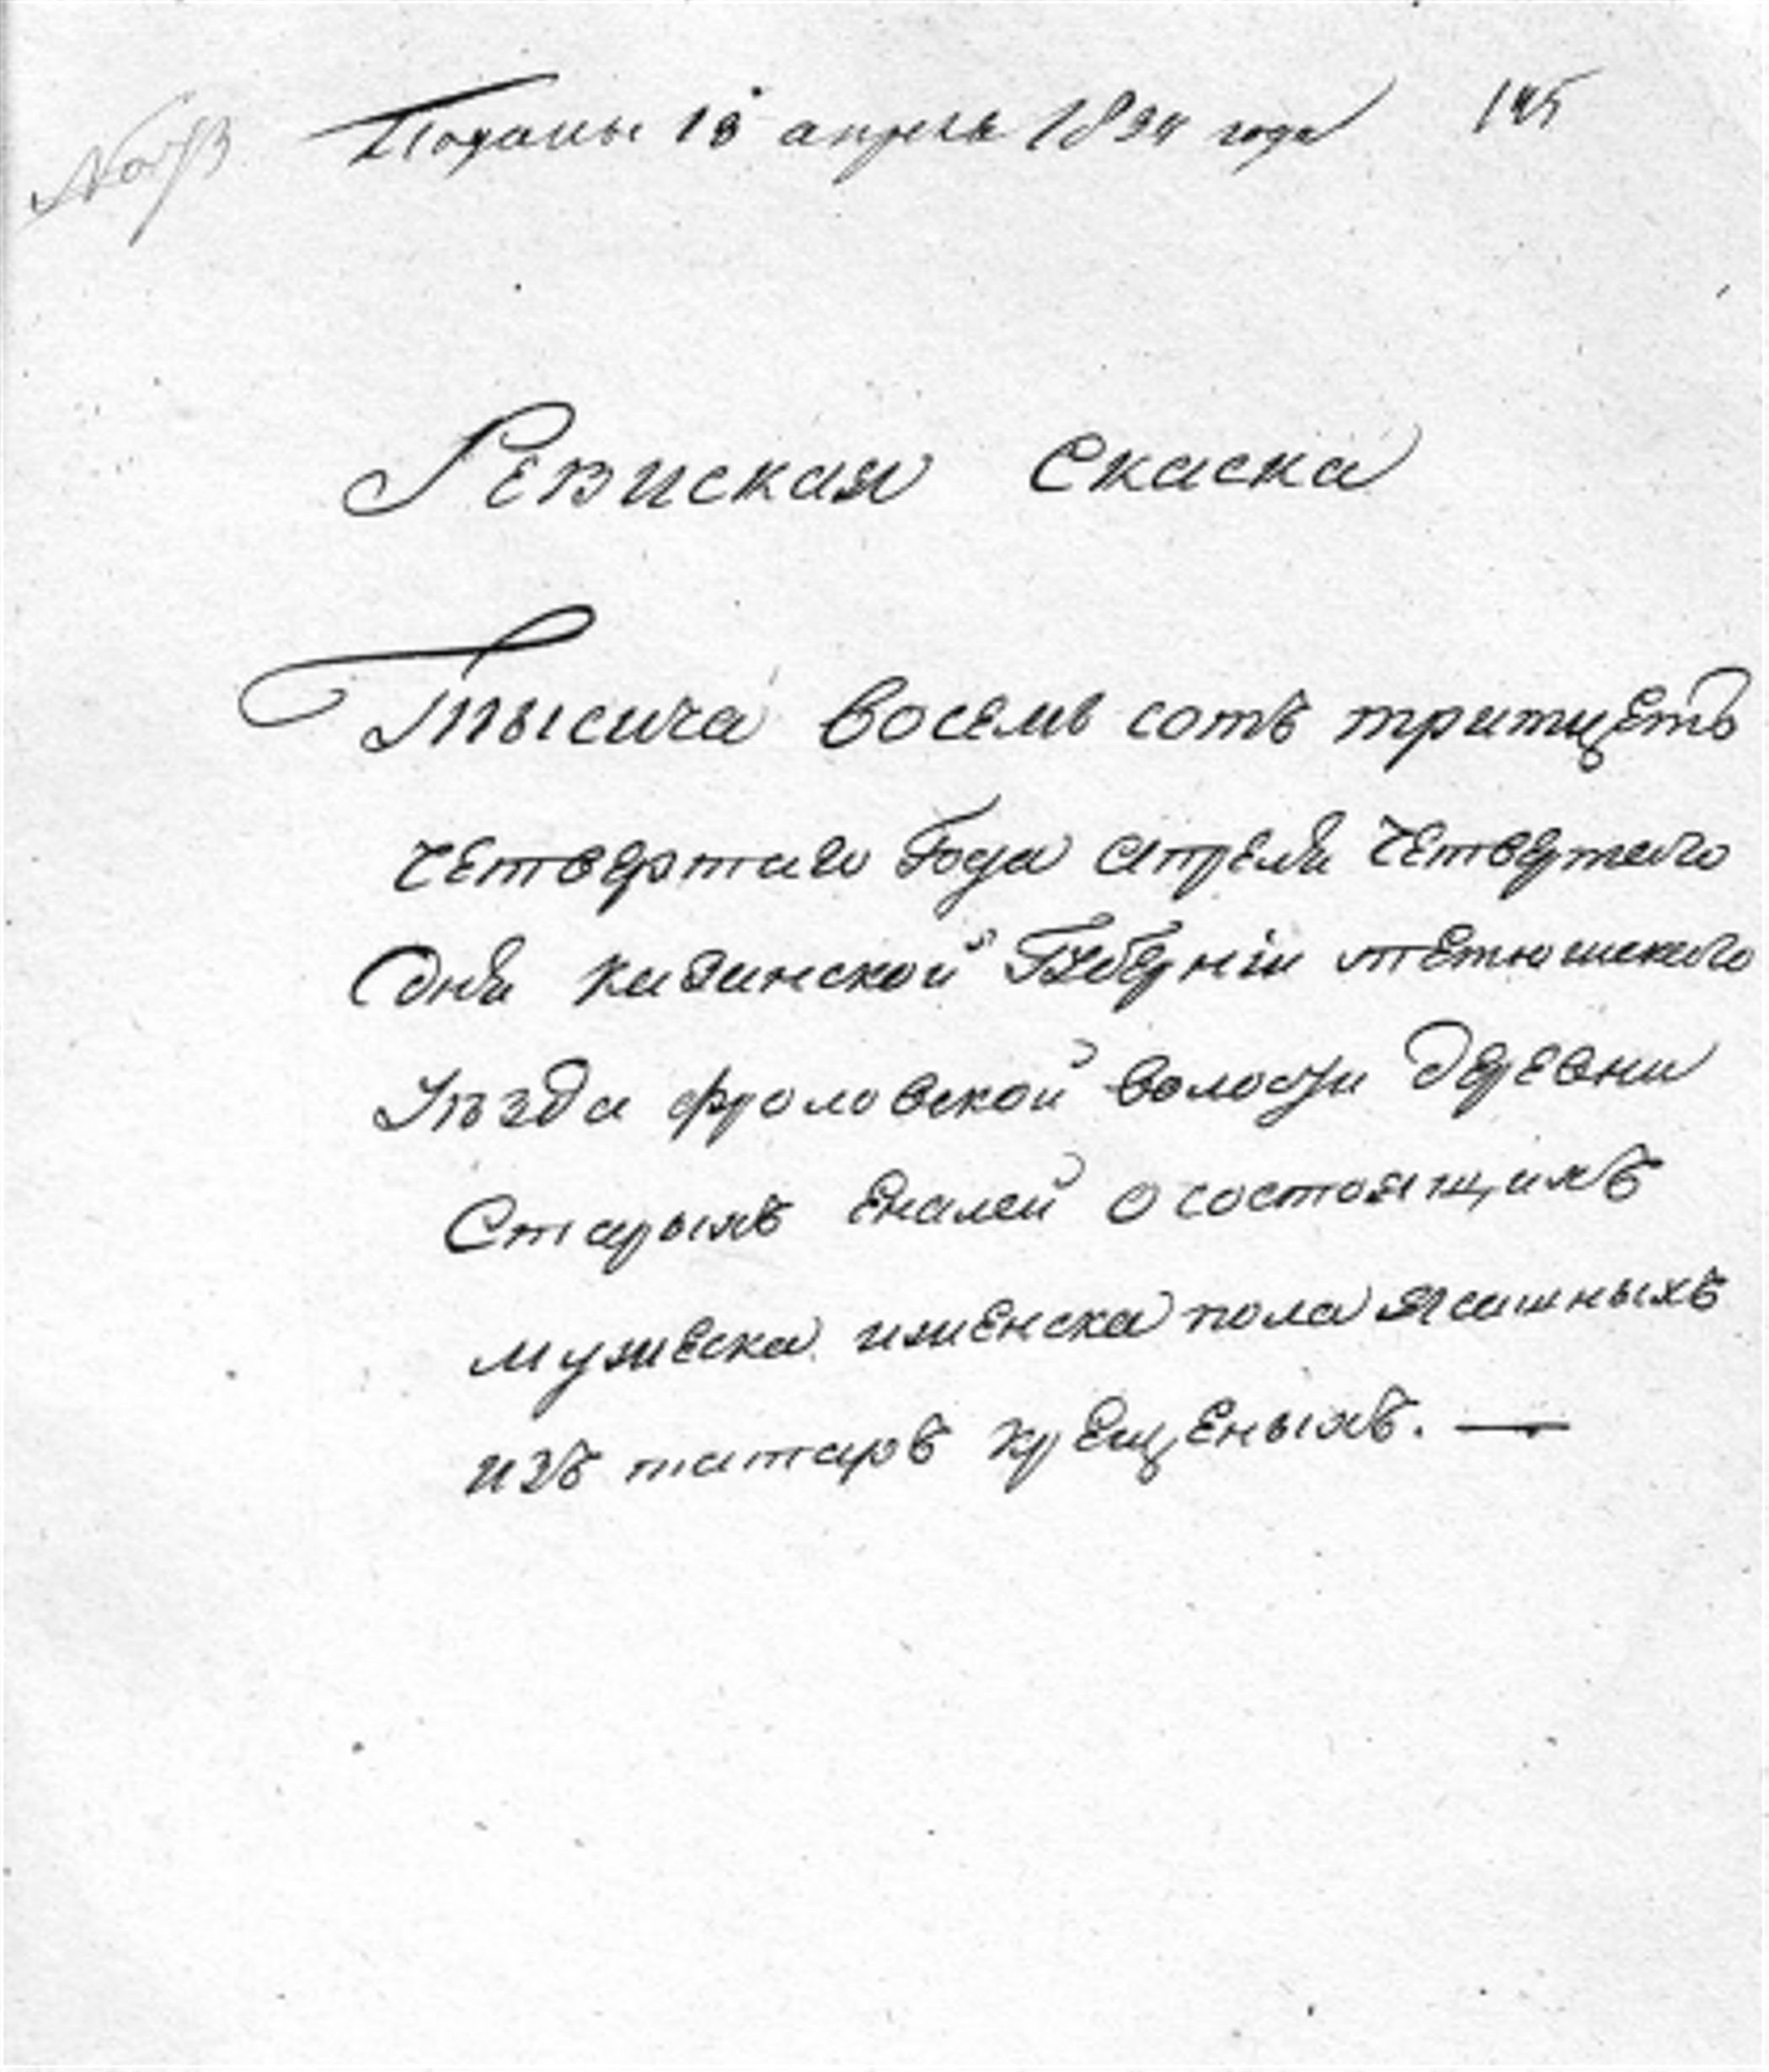 Поданы 18 апреля 1834 года 145
Ревиская Скаска
Тысяча восемь сотъ тритцеть
четвертаго Года апреля четвертаго
дня казанской Губерніи тетюшскаго
уѣзда фроловской волости деревни
Старыхъ Еналей о состоящихъ
мужеска иженска пола ясашныхъ
изъ татаръ крещеныхъ. —